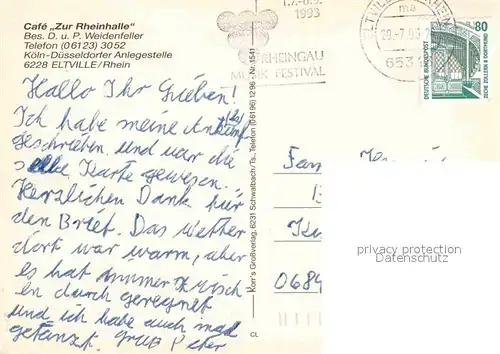 Café „Zur Rheinhalle"
Bes. D. u. P. Weidenfeller
Telefon (06123) 3052
Köln-Düsseldorfer Anlegestelle
6228 ELTVILLE/Rhein
Hallo Ihr Lieben!
Ich habe meine
geschrieben und war die
selbe Karte gewesen.
Herzlichen Dank für
den Brief. Das Wetter
dort war warm, aber
es hat immer zwisch
en durch geregnet
und ich habe auch mal
getanzt. Gruß Peter
Korr's Großverlag, 6231 Schwalbach/Ts., Telefon (06196) 1296 - Nr. 1541
CL
1993
RHEINGAU
MUSIK FESTIVAL
653
80
DEUTSCHE BUNDESPOST
ZECHE ZOLLERN II DORTMUND
Fam
0684
privacy protection
Datenschutz